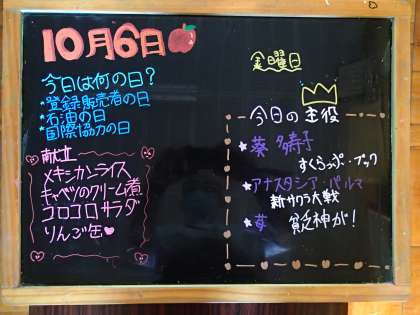 10月6日
今日は何の日?
★登録販売者の日
★石油の日
★国際協力の日
献立
メキシカンライス
キャベツのクリーム煮
コロコロサラダ
りんご缶♥
金曜日
今日の主役
★葵 多寿子
すくらっぷ・ブック
★アナスタシア・パルマ
新サクラ大戦
★苺
貧乏神が!